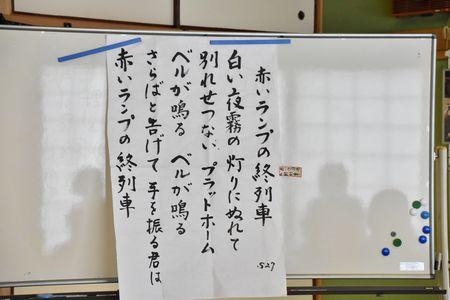 赤いランプの終列車
S27
白い夜霧の灯りにぬれて
別れせつないプラットホーム
ベルが鳴る ベルが鳴る
さらばと告げて手を振る君は
赤いランプの終列車